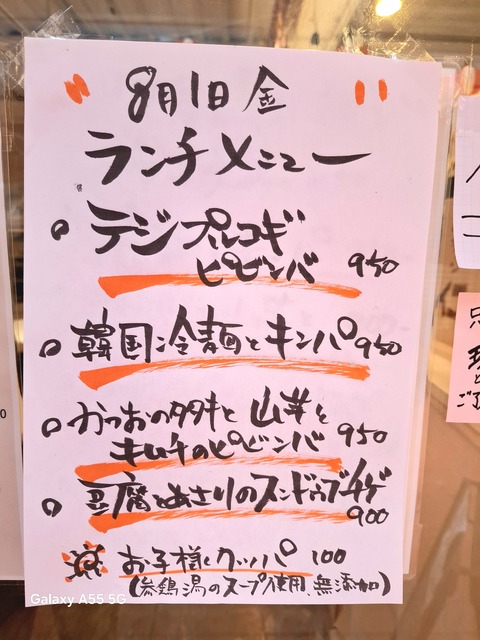 〃 8月1日 金 〃
ランチメニュー
テジプルコギ
ビビンバ 950
韓国冷麺とキンパ 950
かつおのタタキと 山芋と
キムチのビビンバ 950
豆腐とあさりのスンドゥブチゲ
900
お子様クッパ 100
(参鶏湯のスープ使用、無添加)
Galaxy A55 5G